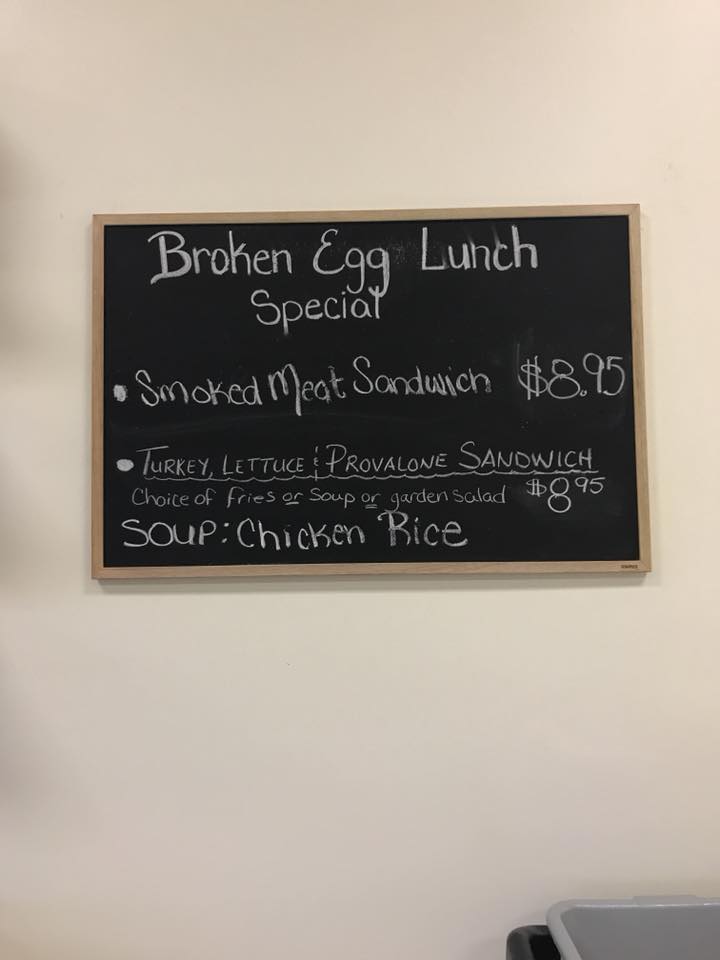 Broken Egg Lunch
Special
• Smoked Meat Sandwich $8.95
• TURKEY, LETTUCE & PROVALONE SANDWICH
Choice of fries or Soup or garden salad $8.95
SOUP: Chicken Rice